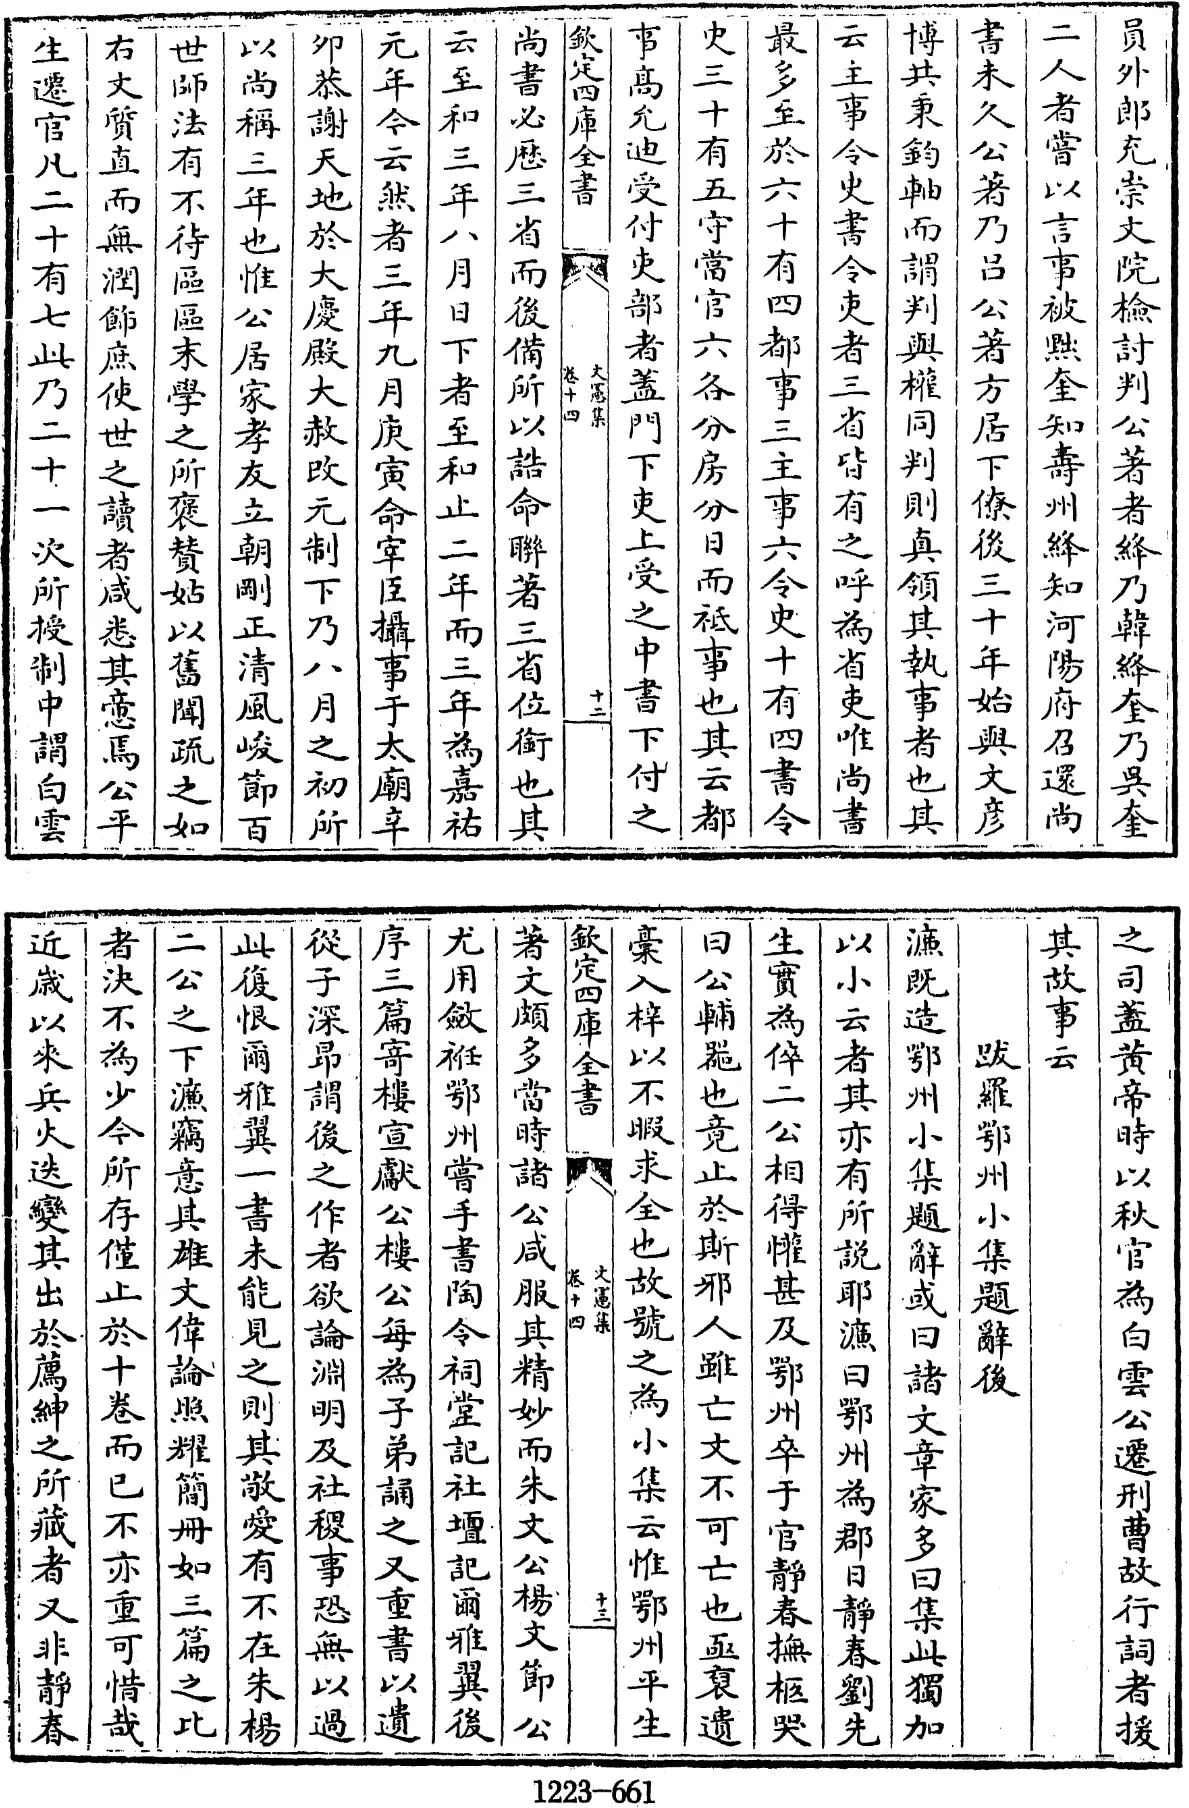 員外郎充崇文院檢討判公著者絳乃韓絳奎乃吳奎
二人者嘗以言事被黜奎知壽州絳知河陽府召還尚
書未久公著乃呂公著方居下僚後三十年始與文彦
博其秉鈞軸而謂判與權同判則真領其執事者也其
云主事令史書令吏者三省皆有之呼為省吏唯尚書
最多至於六十有四都事三主事六令史十有四書令
史三十有五守當官六各分房分日而祗事也其云都
事髙允迪受付吏部者蓋門下吏上受之中書下付之
欽定四庫全書
文憲集
卷十四
十二
尚書必歴三省而後備所以誥命聯著三省位銜也其
云至和三年八月日下者至和止二年而三年為嘉祐
元年今云然者三年九月庚寅命宰臣攝事于太廟辛
夘恭謝天地於大慶殿大赦改元制下乃八月之初所
以尚稱三年也惟公居家孝友立朝剛正清風峻節百
世師法有不待區區末學之所褒贊姑以舊聞疏之如
右文質直而無潤飾庶使世之讀者咸悉其意焉公平
生遷官凡二十有七此乃二十一次所授制中謂白雲
之司蓋黄帝時以秋官為白雲公遷刑曹故行詞者援
其故事云
跋羅鄂州小集題辭後
濂既造鄂州小集題辭或曰諸文章家多曰集此獨加
以小云者其亦有所説耶濂曰鄂州為郡日靜春劉先
生實為倅二公相得懽甚及鄂州卒于官靜春撫柩哭
曰公輔器也竟止於斯邪人雖亡文不可亡也亟裒遺
稾入梓以不暇求全也故號之為小集云惟鄂州平生
欽定四庫全書
文憲集
卷十四
十三
著文頗多當時諸公咸服其精妙而朱文公楊文節公
尤用斂袵鄂州嘗手書陶令祠堂記社壇記爾雅翼後
序三篇寄樓宣獻公樓公每為子弟誦之又重書以遺
從子深昂謂後之作者欲論淵明及社稷事恐無以過
此復恨爾雅翼一書未能見之則其敬愛有不在朱楊
二公之下濂竊意其雄文偉論照耀簡冊如三篇之比
者決不為少今所存僅止於十卷而已不亦重可惜哉
近歲以來兵火迭變其出於薦紳之所藏者又非靜春
1223-661